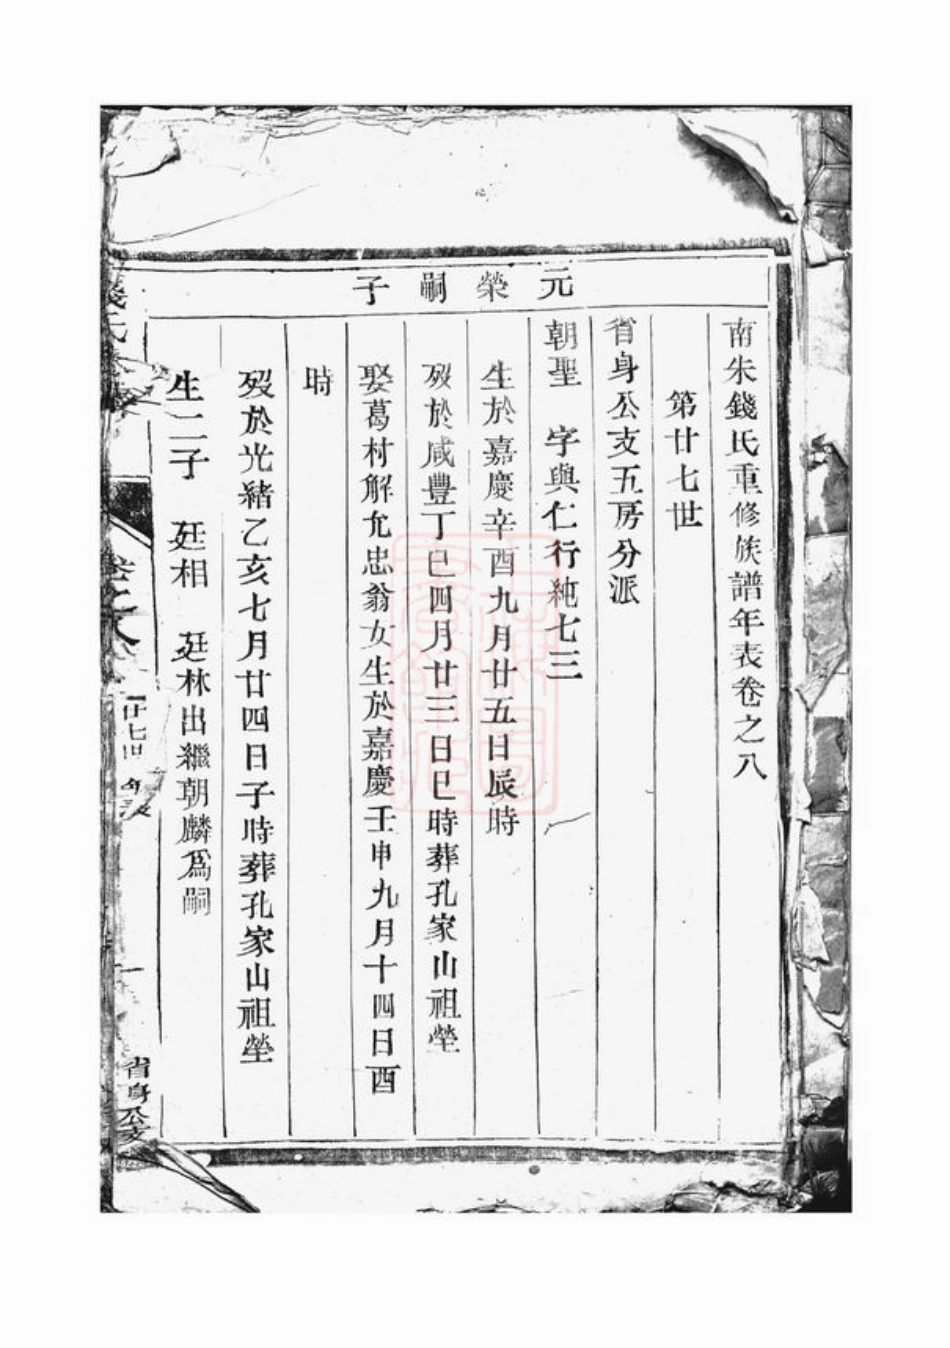 南朱錢氏重修族譜年表卷之八
第廿七世
省身公支五房分派
元榮嗣子
朝聖　字與仁行純七三
生於嘉慶辛酉九月廿五日辰時
歿於咸豐丁巳四月廿三日巳時葬孔家山祖塋
娶葛村解允忠翁女生於嘉慶壬申九月十四日酉
時
歿於光緒乙亥七月廿四日子時葬孔家山祖塋
生二子　廷相　廷林出繼朝麟爲嗣
錢氏
卷之八
廿七世　年表
一
省身公支